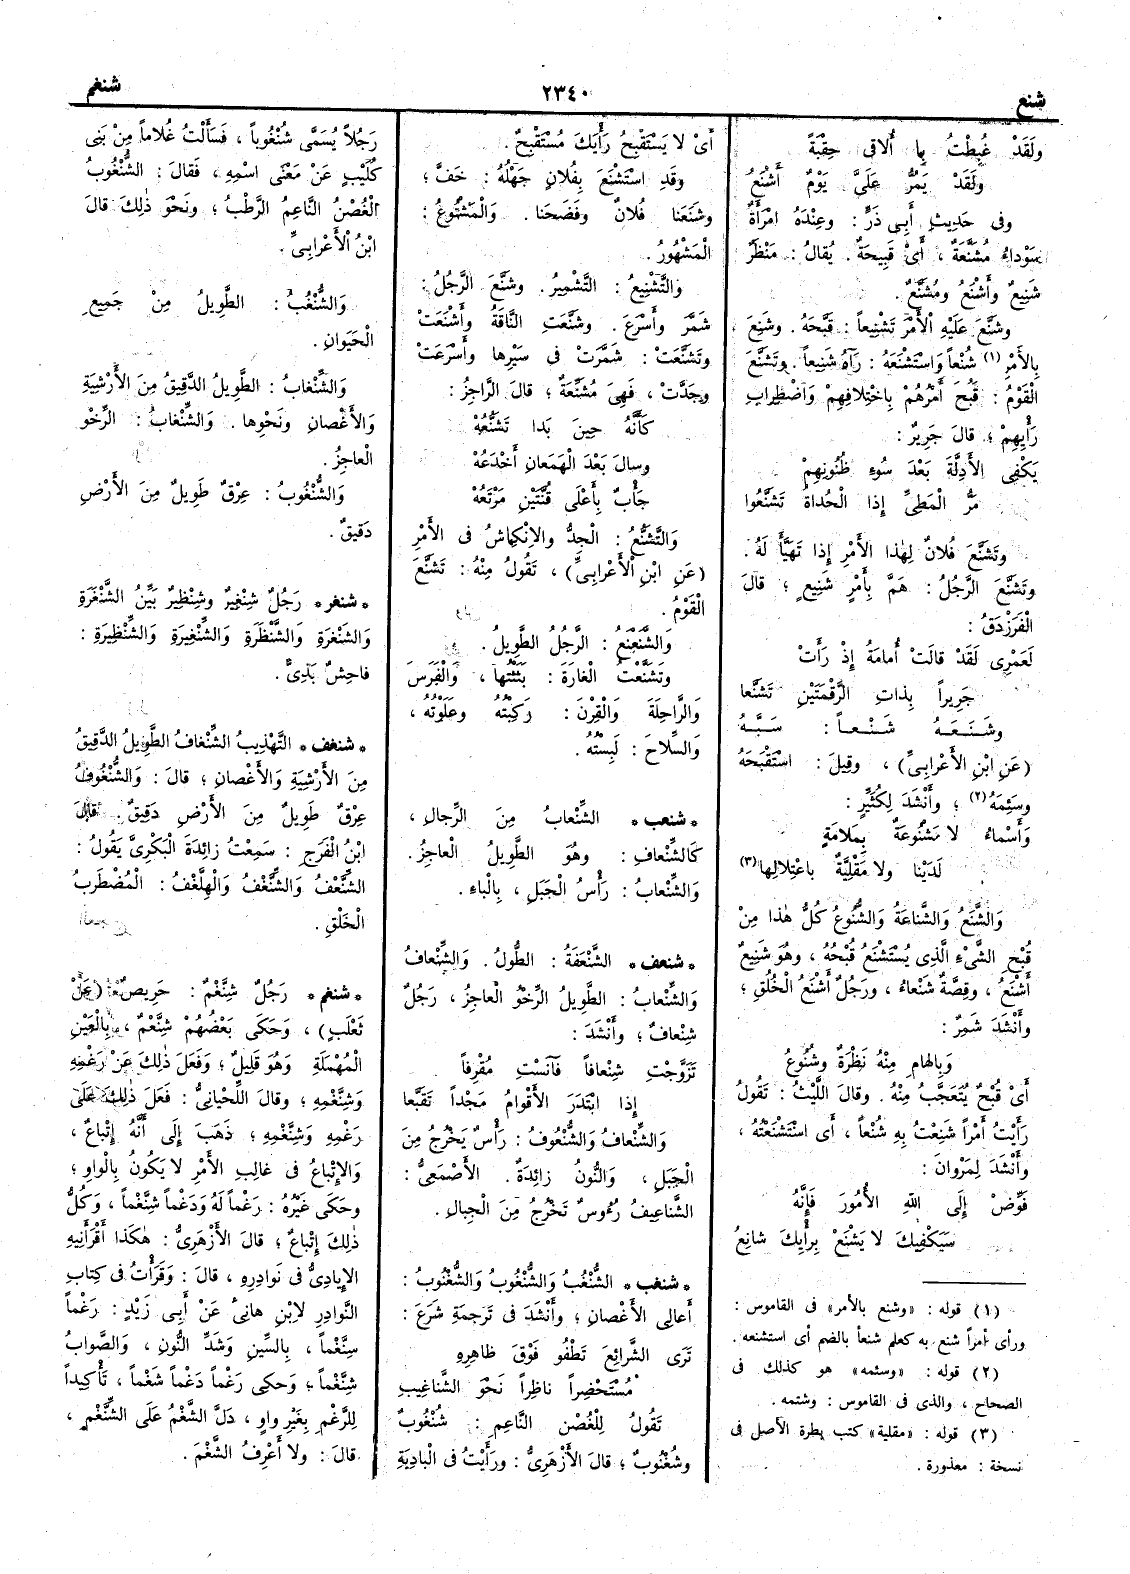 شنع
٢٣٤٠
شنغم
ولَقَدْ غُبِطْتُ بِما أُلاقِى حِقْبَةً
ولَقَدْ يَمُرُّ عَلَىَّ يَوْمٌ أَشْنَعُ
وفى حَدِيثِ أَبِى ذَرٍّ : وعِنْدَهُ امْرَأَةٌ
سَوْداءُ مُشَنَّعَةٌ ، أَىْ قَبِيحَةٌ . يُقالُ : مَنْظَرٌ
شَنِيعٌ وأَشْنَعُ ومُشَنَّعٌ .
وشَنَّعَ عَلَيْهِ الْأَمْرَ تَشْنِيعاً : قَبَّحَهُ . وشَنِعَ ،
بِالأَمْرِ (١) شُنْعاً وَاسْتَشْنَعَهُ : رَآهُ شَنِيعاً . وتَشَنَّعَ
الْقَوْمُ : قَبُحَ أَمْرُهُمْ بِاخْتِلافِهِمْ وَاضْطِرابِ
رَأْيِهِمْ ؛ قالَ جَرِيرٌ :
يَكْفِى الأَدِلَّةَ بَعْدَ سُوءِ ظُنُونِهِمْ
مَرُّ الْمَطِىِّ إِذا الْحُداةُ تَشَنَّعُوا
وتَشَنَّعَ فُلانٌ لِهٰذا الأَمْرِ إِذا تَهَيَّأَ لَهُ .
وتَشَنَّعَ الرَّجُلُ : هَمَّ بِأَمْرٍ شَنِيعٍ ؛ قالَ
الْفَرَزْدَقُ :
لَعَمْرِى لَقَدْ قالَتْ أُمامَةُ إِذْ رَأَتْ
جَرِيراً بِذاتِ الرَّقْمَتَيْنِ تَشَنَّعا
وشَنَعَهُ شَنْعاً : سَبَّهُ
(عَنِ ابْنِ الأَعْرابِىِّ) ، وقِيلَ : اسْتَقْبَحَهُ
وسَئِمَهُ (٢) ؛ وأَنْشَدَ لِكُثَيِّرٍ :
وَأَسْماءُ لا مَشْنُوعَةٌ بِمَلامَةٍ
لَدَيْنا ولا مَقْلِيَّةٌ بِاعْتِلالِها (٣)
وَالشَّنَعُ وَالشَّناعَةُ وَالشُّنُوعُ كُلُّ هٰذا مِنْ
قُبْحِ الشَّىْءِ الَّذِى يُسْتَشْنَعُ قُبْحُهُ ، وهُوَ شَنِيعٌ
أَشْنَعُ ، وقِصَّةٌ شَنْعاءُ ، ورَجُلٌ أَشْنَعُ الْخُلُقِ ؛
وأَنْشَدَ شَمِرٌ :
وَبِالهامِ مِنْهُ نَظْرَةٌ وشُنُوعُ
أَىْ قُبْحٌ يُتَعَجَّبُ مِنْهُ . وقالَ اللَّيْثُ : تَقُولُ
رَأَيْتُ أَمْراً شَنِعْتُ بِهِ شُنْعاً ، أَى اسْتَشْنَعْتُهُ ،
وأَنْشَدَ لِمَرْوانَ :
فَوِّضْ إِلَى اللهِ الأُمُورَ فَإِنَّهُ
سَيَكْفِيكَ لا يَشْنَعْ بِرَأْيِكَ شانِعُ
(١) قوله : «وشنع بالأمر» فى القاموس :
ورأى أمراً شنع به كعلم شنعاً بالضم أى استشنعه .
(٢) قوله : «وسئمه» هو كذلك فى
الصحاح ، والذى فى القاموس : وشتمه .
(٣) قوله : «مقلية» كتب بطرة الأصل فى
نسخة : معذورة .
أَىْ لا يَسْتَقْبِحُ رَأْيَكَ مُسْتَقْبِحٌ .
وقَدِ اسْتَشْنَعَ بِفُلانٍ جَهْلُهُ : خَفَّ ؛
وشَنَعَنا فُلانٌ وفَضَحَنا . وَالْمَشْنُوعُ :
الْمَشْهُورُ .
وَالتَّشْنِيعُ : التَّشْمِيرُ . وشَنَّعَ الرَّجُلُ :
شَمَّرَ وأَسْرَعَ . وشَنَّعَتِ النَّاقَةُ وأَشْنَعَتْ
وتَشَنَّعَتْ : شَمَّرَتْ فى سَيْرِها وأَسْرَعَتْ
وجَدَّتْ ، فَهِىَ مُشَنِّعَةٌ ؛ قالَ الرَّاجِزُ :
كَأَنَّهُ حِينَ بَدا تَشَنُّعُهْ
وسالَ بَعْدَ الْهَمَعانِ أَخْدَعُهْ
جَأْبٌ بِأَعْلَى قُنَّتَيْنِ مَرْتَعُهْ
وَالتَّشَنُّعُ : الْجِدُّ والاِنْكِماشُ فى الأَمْرِ
(عَنِ ابْنِ الْأَعْرابِىِّ) ، تَقُولُ مِنْهُ : تَشَنَّعَ
الْقَوْمُ .
وَالشَّنَعْنَعُ : الرَّجُلُ الطَّوِيلُ .
وَتَشَنَّعْتُ الْغارَةَ : بَثَثْتُها ، وَالْفَرَسَ
وَالرَّاحِلَةَ وَالْقِرْنَ : رَكِبْتُهُ وعَلَوْتُهُ ،
وَالسِّلاحَ : لَبِسْتُهُ .
* شنعب * الشِّنْعابُ مِنَ الرِّجالِ ،
كَالشِّنْعافِ : وهُوَ الطَّوِيلُ الْعاجِزُ .
وَالشِّنْعابُ : رَأْسُ الْجَبَلِ ، بِالْباءِ .
* شنعف * الشَّنْعَفَةُ : الطُّولُ . وَالشِّنْعافُ
وَالشِّنْعابُ : الطَّوِيلُ الرِّخْوُ الْعاجِزُ ، رَجُلٌ
شِنْعافٌ ؛ وأَنْشَدَ :
تَزَوَّجْتِ شِنْعافاً فَآنَسْتِ مُقْرِفاً
إِذا ابْتَدَرَ الأَقْوامُ مَجْداً تَقَبَّعا
وَالشِّنْعافُ وَالشُّنْعُوفُ : رَأْسٌ يَخْرُجُ مِنَ
الْجَبَلِ ، وَالنُّونُ زائِدَةٌ . الأَصْمَعِىُّ :
الشَّناعِيفُ رُءُوسٌ تَخْرُجُ مِنَ الْجِبالِ .
* شنغب * الشُّنْغُبُ وَالشُّنْغُوبُ وَالشُّغْنُوبُ :
أَعالِى الأَغْصانِ ؛ وأَنْشَدَ فى تَرْجَمَةِ شَرَعَ :
تَرَى الشَّرائِعَ تَطْفُو فَوْقَ ظاهِرِهِ
مُسْتَحْضِراً ناظِراً نَحْوَ الشَّناغِيبِ
تَقُولُ لِلْغُصْنِ النَّاعِمِ : شُنْغُوبٌ
وشُغْنُوبٌ ؛ قالَ الأَزْهَرِىُّ : ورَأَيْتُ فى الْبادِيَةِ
رَجُلاً يُسَمَّى شُنْغُوباً ، فَسَأَلْتُ غُلاماً مِنْ بَنِى
كُلَيْبٍ عَنْ مَعْنَى اسْمِهِ ، فَقالَ : الشُّنْغُوبُ
الْغُصْنُ النَّاعِمُ الرَّطْبُ ؛ ونَحْوَ ذٰلِكَ قالَ
ابْنُ الْأَعْرابِىِّ .
وَالشُّنْغُبُ : الطَّوِيلُ مِنْ جَمِيعِ
الْحَيَوانِ .
وَالشِّنْغابُ : الطَّوِيلُ الدَّقِيقُ مِنَ الأَرْشِيَةِ
وَالأَغْصانِ ونَحْوِها . وَالشِّنْغابُ : الرِّخْوُ
الْعاجِزُ .
وَالشُّنْغُوبُ : عِرْقٌ طَوِيلٌ مِنَ الأَرْضِ
دَقِيقٌ .
* شنغر * رَجُلٌ شِنْغِيرٌ وشِنْظِيرٌ بَيِّنُ الشَّنْغَرَةِ
وَالشِّنْغَرَةِ وَالشَّنْظَرَةِ وَالشِّنْغِيرَةِ وَالشِّنْظِيرَةِ :
فاحِشٌ بَذِىٌّ .
* شنغف * التَّهْذِيبُ الشِّنْغافُ الطَّوِيلُ الدَّقِيقُ
مِنَ الأَرْشِيَةِ وَالأَغْصانِ ؛ قالَ : وَالشُّنْغُوفُ
عِرْقٌ طَوِيلٌ مِنَ الأَرْضِ دَقِيقٌ . قالَ
ابْنُ الْفَرَجِ : سَمِعْتُ زائِدَةَ الْبَكْرِىَّ يَقُولُ :
الشِّنَّعْفُ وَالشِّنَّغْفُ وَالْهِلَّغْفُ : الْمُضْطَرِبُ
الْخَلْقِ .
* شنغم * رَجُلٌ شِنَّغْمٌ : حَرِيصٌ (عَنْ
ثَعْلَبٍ) ، وَحَكَى بَعْضُهُمْ شِنَّعْمٌ ، بِالْعَيْنِ
الْمُهْمَلَةِ وَهُوَ قَلِيلٌ ؛ وَفَعَلَ ذٰلِكَ عَنْ رَغْمِهِ
وَشِنَّغْمِهِ ؛ وقالَ اللِّحْيانِىُّ : فَعَلَ ذٰلِكَ عَلَى
رَغْمِهِ وَشِنَّغْمِهِ ؛ ذَهَبَ إِلَى أَنَّهُ إِتْباعٌ ،
وَالإِتْباعُ فى غالِبِ الأَمْرِ لا يَكُونُ بِالْواوِ ؛
وحَكَى غَيْرُهُ : رَغْماً لَهُ وَدَغْماً شِنَّغْماً ، وَكُلُّ
ذٰلِكَ إِتْباعٌ ؛ قالَ الأَزْهَرِىُّ : هٰكَذا أَقْرَأَنِيهِ
الإِيادِىُّ فى نَوادِرِهِ ، قالَ : وَقَرَأْتُ فى كِتابِ
النَّوادِرِ لِابْنِ هانِئٍ عَنْ أَبِى زَيْدٍ : رَغْماً
سِنَّغْماً ، بِالسِّينِ وَشَدِّ النُّونِ ، وَالصَّوابُ
شِنَّغْماً ؛ وَحكى رَغْماً دَغْماً شَغْماً ، تَأْكِيداً
لِلرَّغْمِ بِغَيْرِ واوٍ ، دَلَّ الشَّغْمُ عَلَى الشِّنَّغْمِ ،
قالَ : ولا أَعْرِفُ الشَّغْمَ .